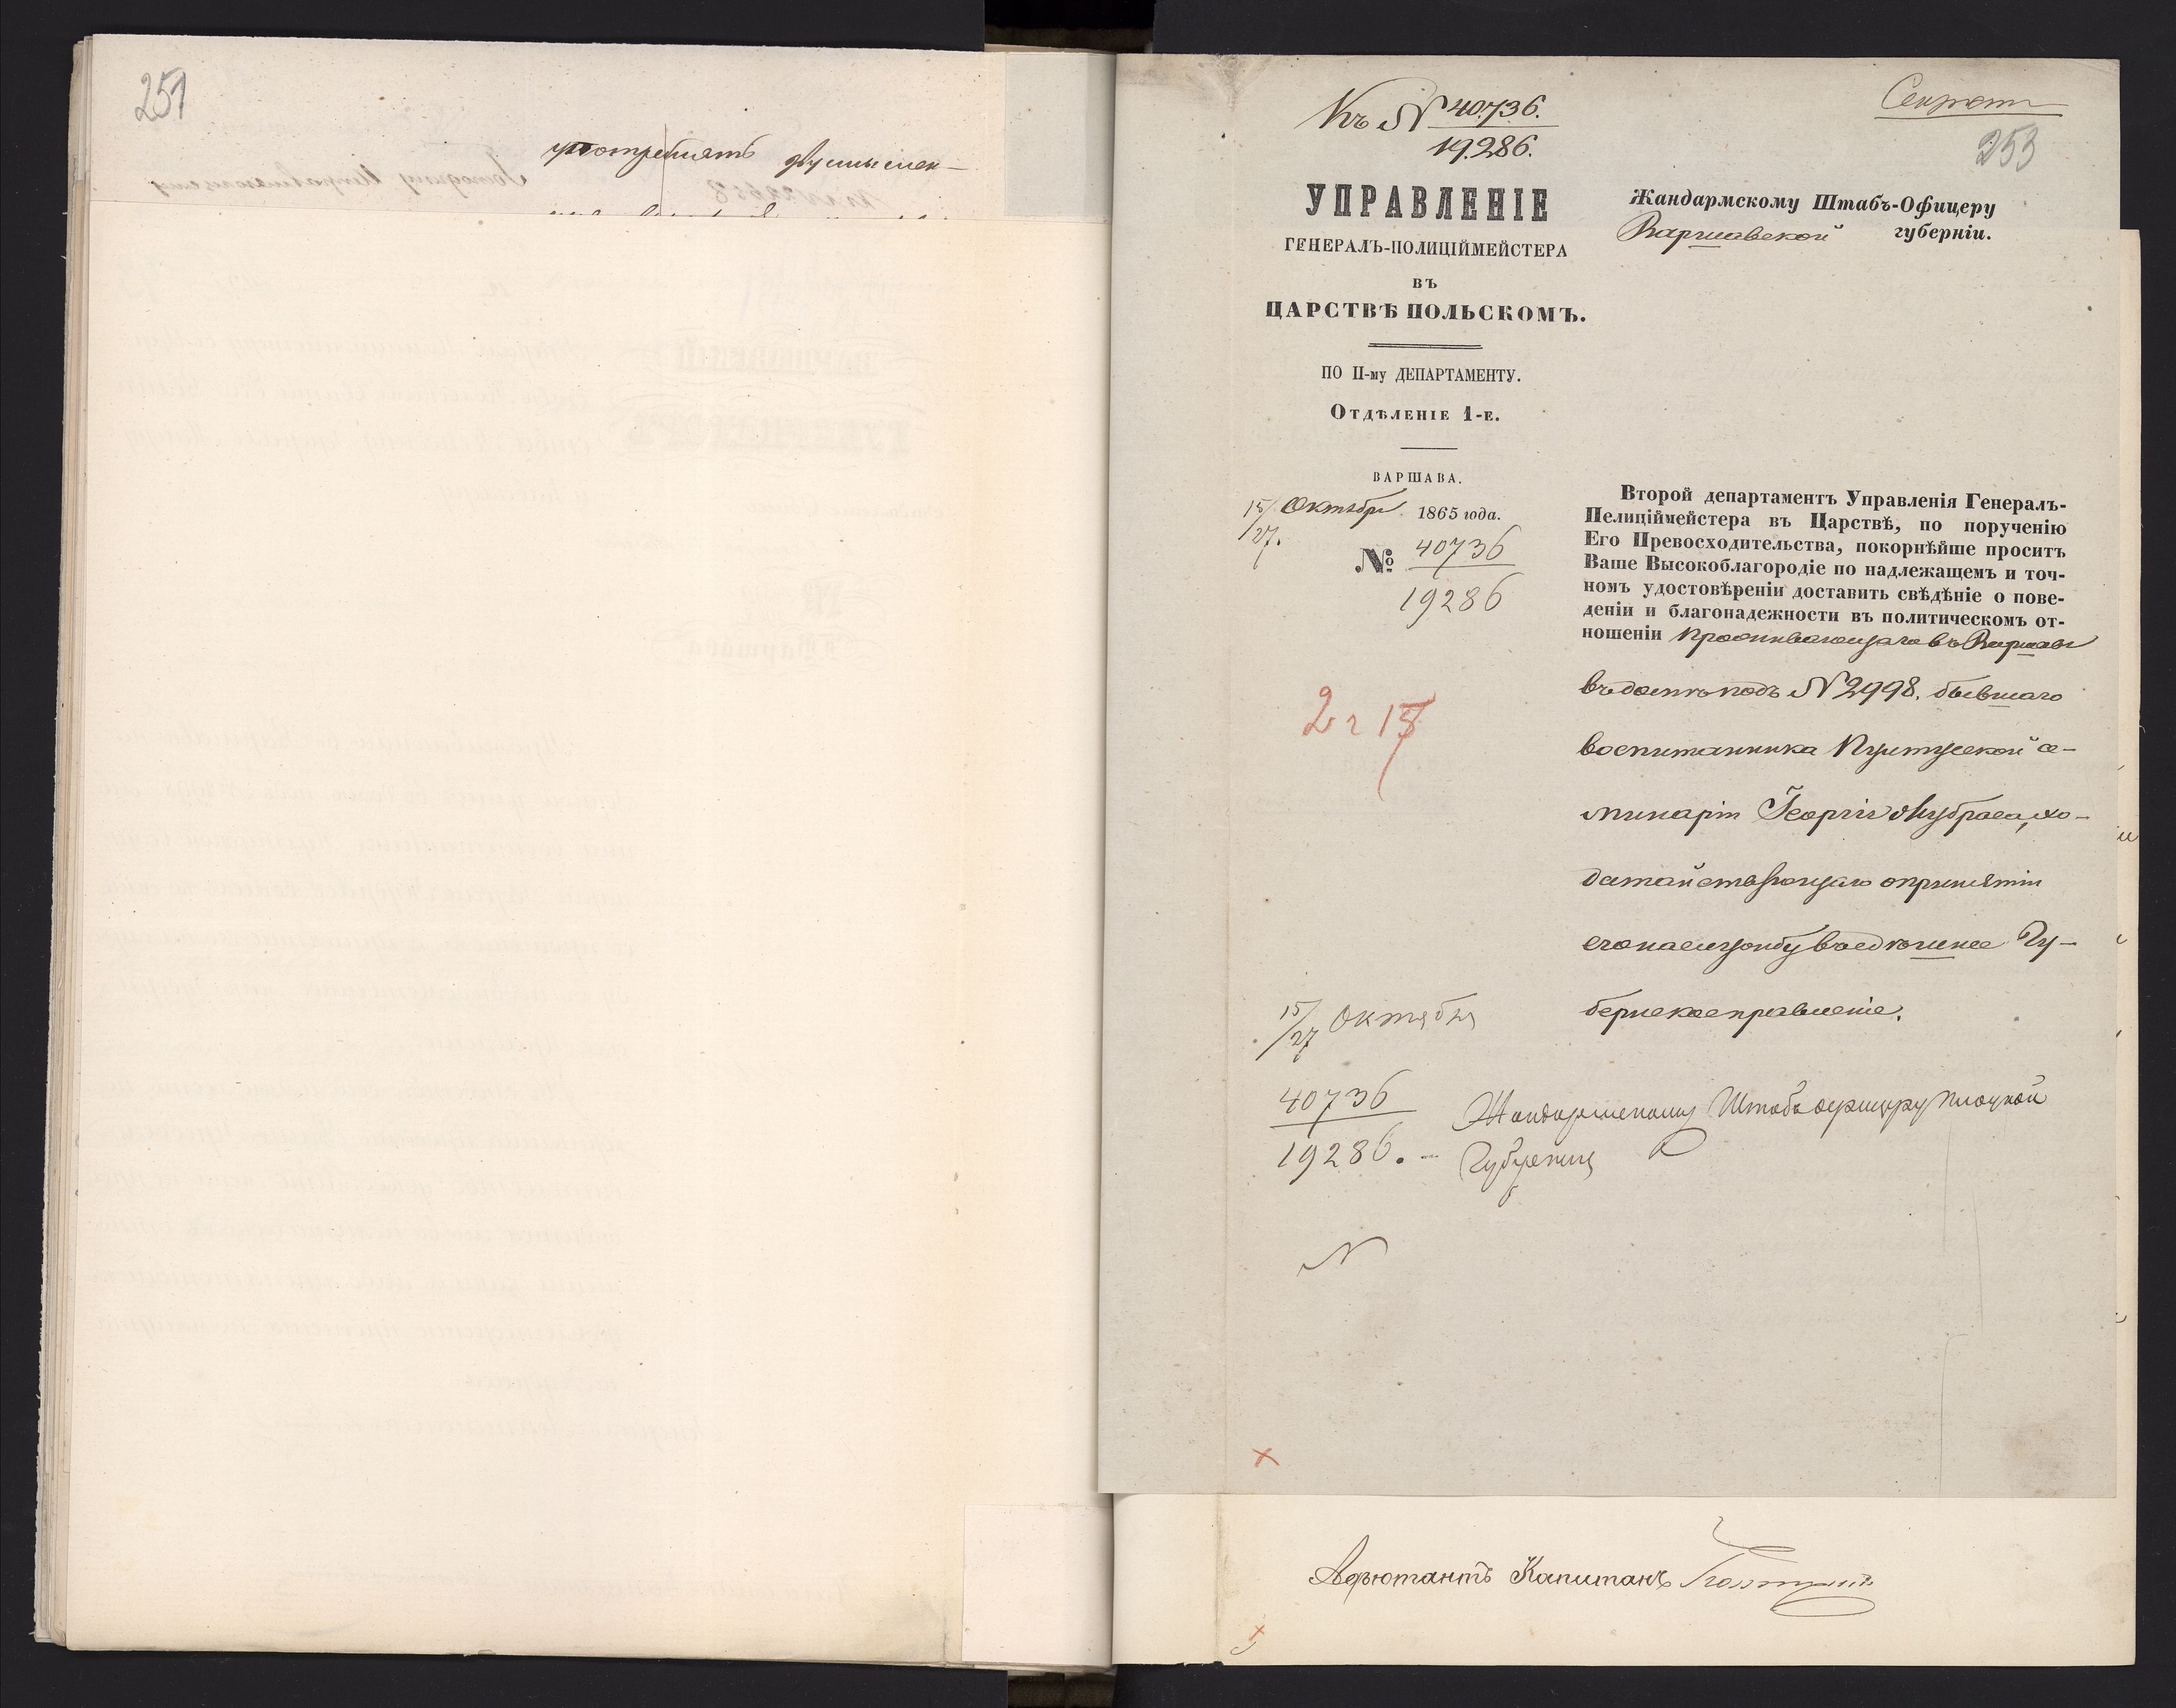 251
употреблять двусмыслен-
Къ № 40736.
19286.
Секретно
253
УПРАВЛЕНІЕ
ГЕНЕРАЛЪ-ПОЛИЦІЙМЕЙСТЕРА
ВЪ
ЦАРСТВѢ ПОЛЬСКОМЪ.
ПО II-му ДЕПАРТАМЕНТУ.
Отдѣленіе 1-е.
ВАРШАВА.
15/27. Октября 1865 года.
№ 40736
19286
2 г 15
Жандармскому Штабъ-Офицеру
Варшавской губерніи.
Второй департаментъ Управленія Генералъ-
Пелиціймейстера въ Царствѣ, по порученію
Его Превосходительства, покорнѣйше проситъ
Ваше Высокоблагородіе по надлежащемъ и точ-
номъ удостовѣреніи доставить свѣдѣніе о пове-
деніи и благонадежности въ политическомъ от-
ношеніи проживающаго въ Варшавѣ
въ домѣ подъ № 2998. бывшаго
воспитанника Пултуской се-
минаріи Георгія Кубраса, хо-
датайствующаго о принятіи
его на службу въ здѣшнее Гу-
бернское правленіе.
15/27 Октября
40736
19286. – Жандармскому Штабъ офицеру Плоцкой
Губерніи
N
Адъютантъ Капитанъ